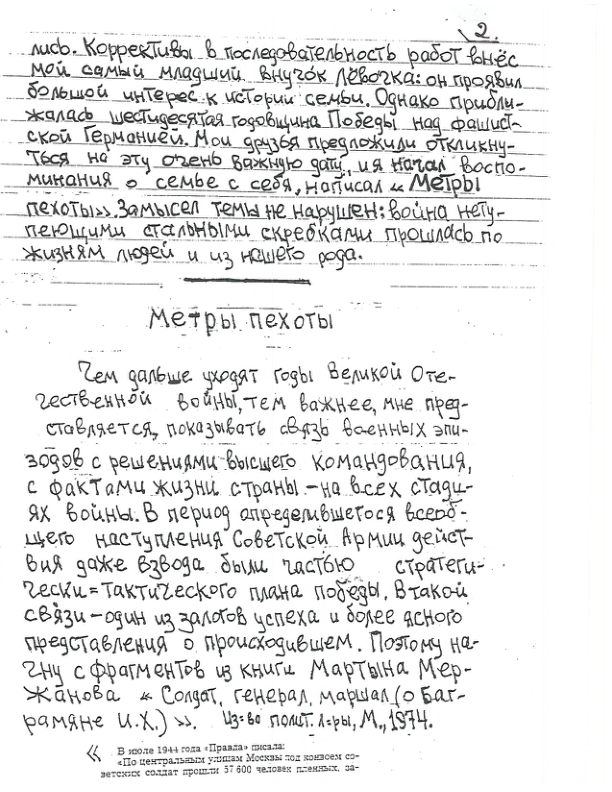 2.
лись. Коррективы в последовательность работ внёс
мой самый младший внучок Лёвочка: он проявил
большой интерес к истории семьи. Однако прибли-
жалась шестидесятая годовщина Победы над фашист-
ской Германией. Мои друзья предложили откликну-
ться на эту очень важную дату, и я начал воспо-
минания о семье с себя, написал « Метры
пехоты». Замысел темы не нарушен: война нету-
пеющими стальными скребками прошлась по
жизням людей и из нашего рода.
Метры пехоты
Чем дальше уходят годы Великой Оте-
чественной войны, тем важнее, мне пред-
ставляется, показывать связь военных эпи-
зодов с решениями высшего командования,
с фактами жизни страны - на всех стади-
ях войны. В период определившегося всеоб-
щего наступления Советской Армии дейст-
вия даже взвода были частью стратеги-
чески=тактического плана победы. В такой
связи - один из залогов успеха и более ясного
представления о происходившем. Поэтому на-
чну с фрагментов из книги Мартына Мер-
жанова « Солдат, генерал, маршал (о Баг-
рамяне И.Х.) ». Из=во полит. л=ры, М., 1974.
« В июле 1944 года «Правда» писала:
«По центральным улицам Москвы под конвоем со-
ветских солдат прошли 57 600 человек пленных, за-